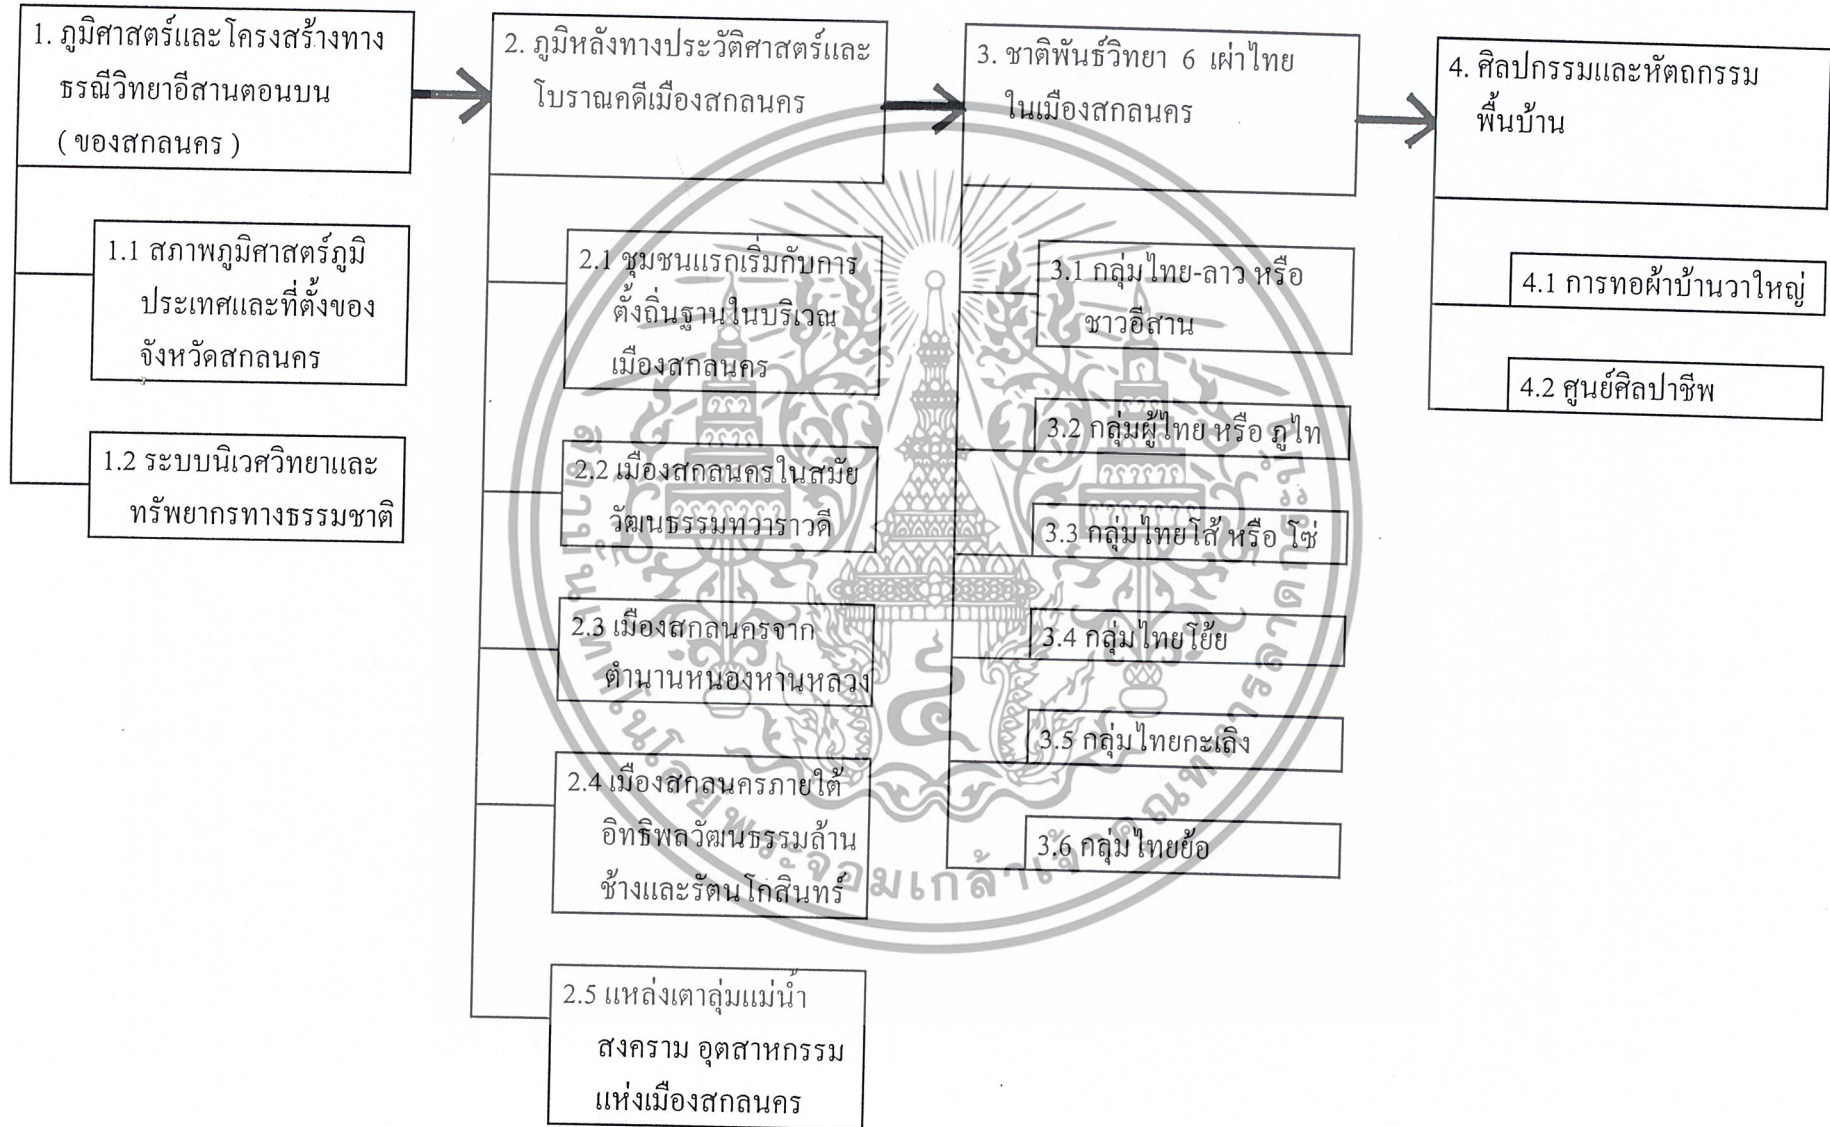 1. ภูมิศาสตร์และโครงสร้างทาง
ธรณีวิทยาอีสานตอนบน
( ของสกลนคร )
1.1 สภาพภูมิศาสตร์ภูมิ
ประเทศและที่ตั้งของ
จังหวัดสกลนคร
1.2 ระบบนิเวศวิทยาและ
ทรัพยากรทางธรรมชาติ
2. ภูมิหลังทางประวัติศาสตร์และ
โบราณคดีเมืองสกลนคร
2.1 ชุมชนแรกเริ่มกับการ
ตั้งถิ่นฐานในบริเวณ
เมืองสกลนคร
2.2 เมืองสกลนครในสมัย
วัฒนธรรมทวาราวดี
2.3 เมืองสกลนครจาก
ตำนานหนองหานหลวง
2.4 เมืองสกลนครภายใต้
อิทธิพลวัฒนธรรมล้าน
ช้างและรัตนโกสินทร์
2.5 แหล่งเตาลุ่มแม่น้ำ
สงคราม อุตสาหกรรม
แห่งเมืองสกลนคร
3. ชาติพันธ์วิทยา 6 เผ่าไทย
ในเมืองสกลนคร
3.1 กลุ่มไทย-ลาว หรือ
ชาวอีสาน
3.2 กลุ่มผู้ไทย หรือ ภูไท
3.3 กลุ่มไทยโส้ หรือ โซ่
3.4 กลุ่มไทยโย้ย
3.5 กลุ่มไทยกะเลิง
3.6 กลุ่มไทยย้อ
4. ศิลปกรรมและหัตถกรรม
พื้นบ้าน
4.1 การทอผ้าบ้านวาใหญ่
4.2 ศูนย์ศิลปาชีพ
สถาบันเทคโนโลยีพระจอมเกล้าเจ้าคุณทหารลาดกระบัง